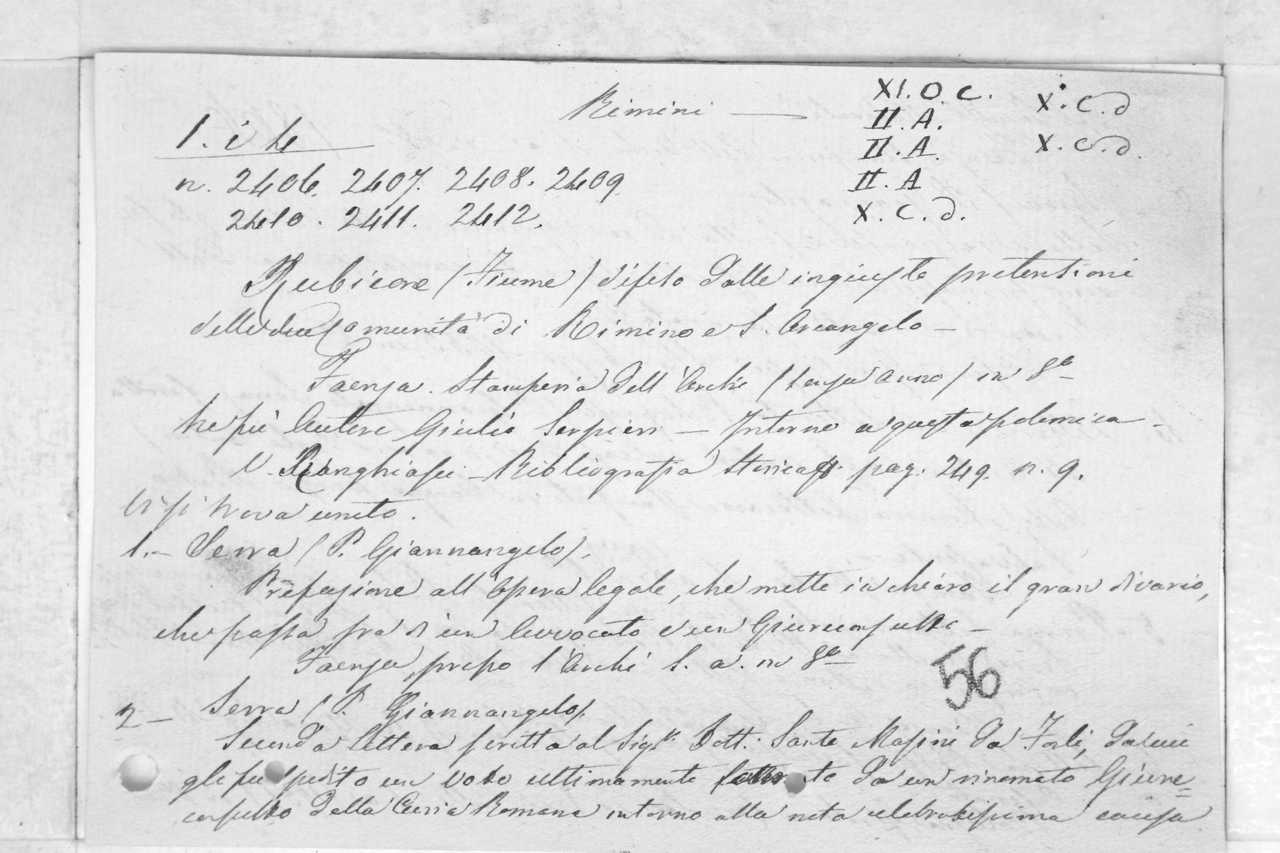 Rimini —
XI. O. C. X. C. d
II. A.
II. A. X. C. d.
II. A
X. C. d.
1. i 4
n. 2406. 2407. 2408. 2409
2410. 2411. 2412.
Rubicone (Fiume) difeso dalle ingiuste pretensioni
delle due Comunità di Rimino e S. Arcangelo —
Faenza. Stamperia dell'Archi (senza anno) in 8º
Ne fù Autore Giulio Serpieri — Intorno a questa polemica —
V. Ranghiasci — Bibliografia Storica pag. 249. n. 9.
Vi si trova unito.
1. — Serra (P. Giannangelo).
Prefazione all'Opera legale, che mette in chiaro il gran divario,
che passa fra di un Avvocato e un Giureconsulto —
Faenza, presso l'Archi S. a. in 8º
56
2 — Serra (P. Giannangelo).
Seconda lettera scritta al Sigr. Dott. Sante Masini da Forlì, da cui
gli fu spedito un Voto ultimamente da un rinomato Giure=
consulto della Curia Romana intorno alla nota celebratissima causa